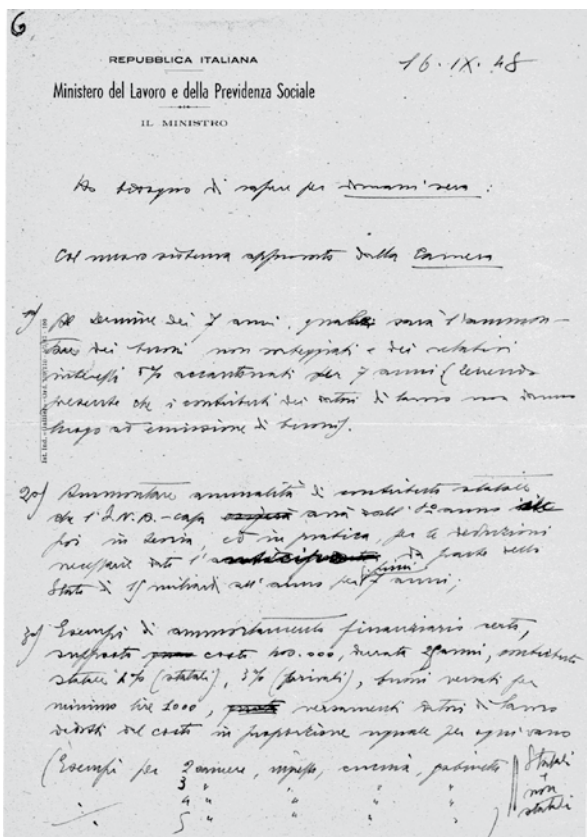 6
REPUBBLICA ITALIANA
16.IX.48
Ministero del Lavoro e della Previdenza Sociale
IL MINISTRO
Ho bisogno di sapere per domani sera:
Col nuovo sistema approvato dalla Camera
1°) Al termine dei 7 anni, quale sarà l'ammon-
tare dei buoni non sorteggiati e dei relativi
interessi 5% accantonati per 7 anni (tenendo
presente che i contributi dei datori di lavoro non danno
luogo ad emissione di buoni).
2°) Ammontare annualità di contributo statale
che l'I.N.A.-casa avrà dall'8° anno
poi in teoria ed in pratica, per le deduzioni
necessarie dato l' da parte dello
Stato di 15 miliardi all'anno per i primi 7 anni;
3°) Esempi di ammortamento finanziario certo,
supposto costo 400.000, durata 25 anni, contributo
statale 4% (statali), 3% (privati), buoni versati per
minimo lire 1000, versamenti datori di lavoro
dedotti dal costo in proporzione uguale per ogni vano
(Esempi per 2 camere, ingresso, cucina, gabinetto
3 " " " "
4 " " " "
5 " " " " )
Statali
e
non
statali
./.